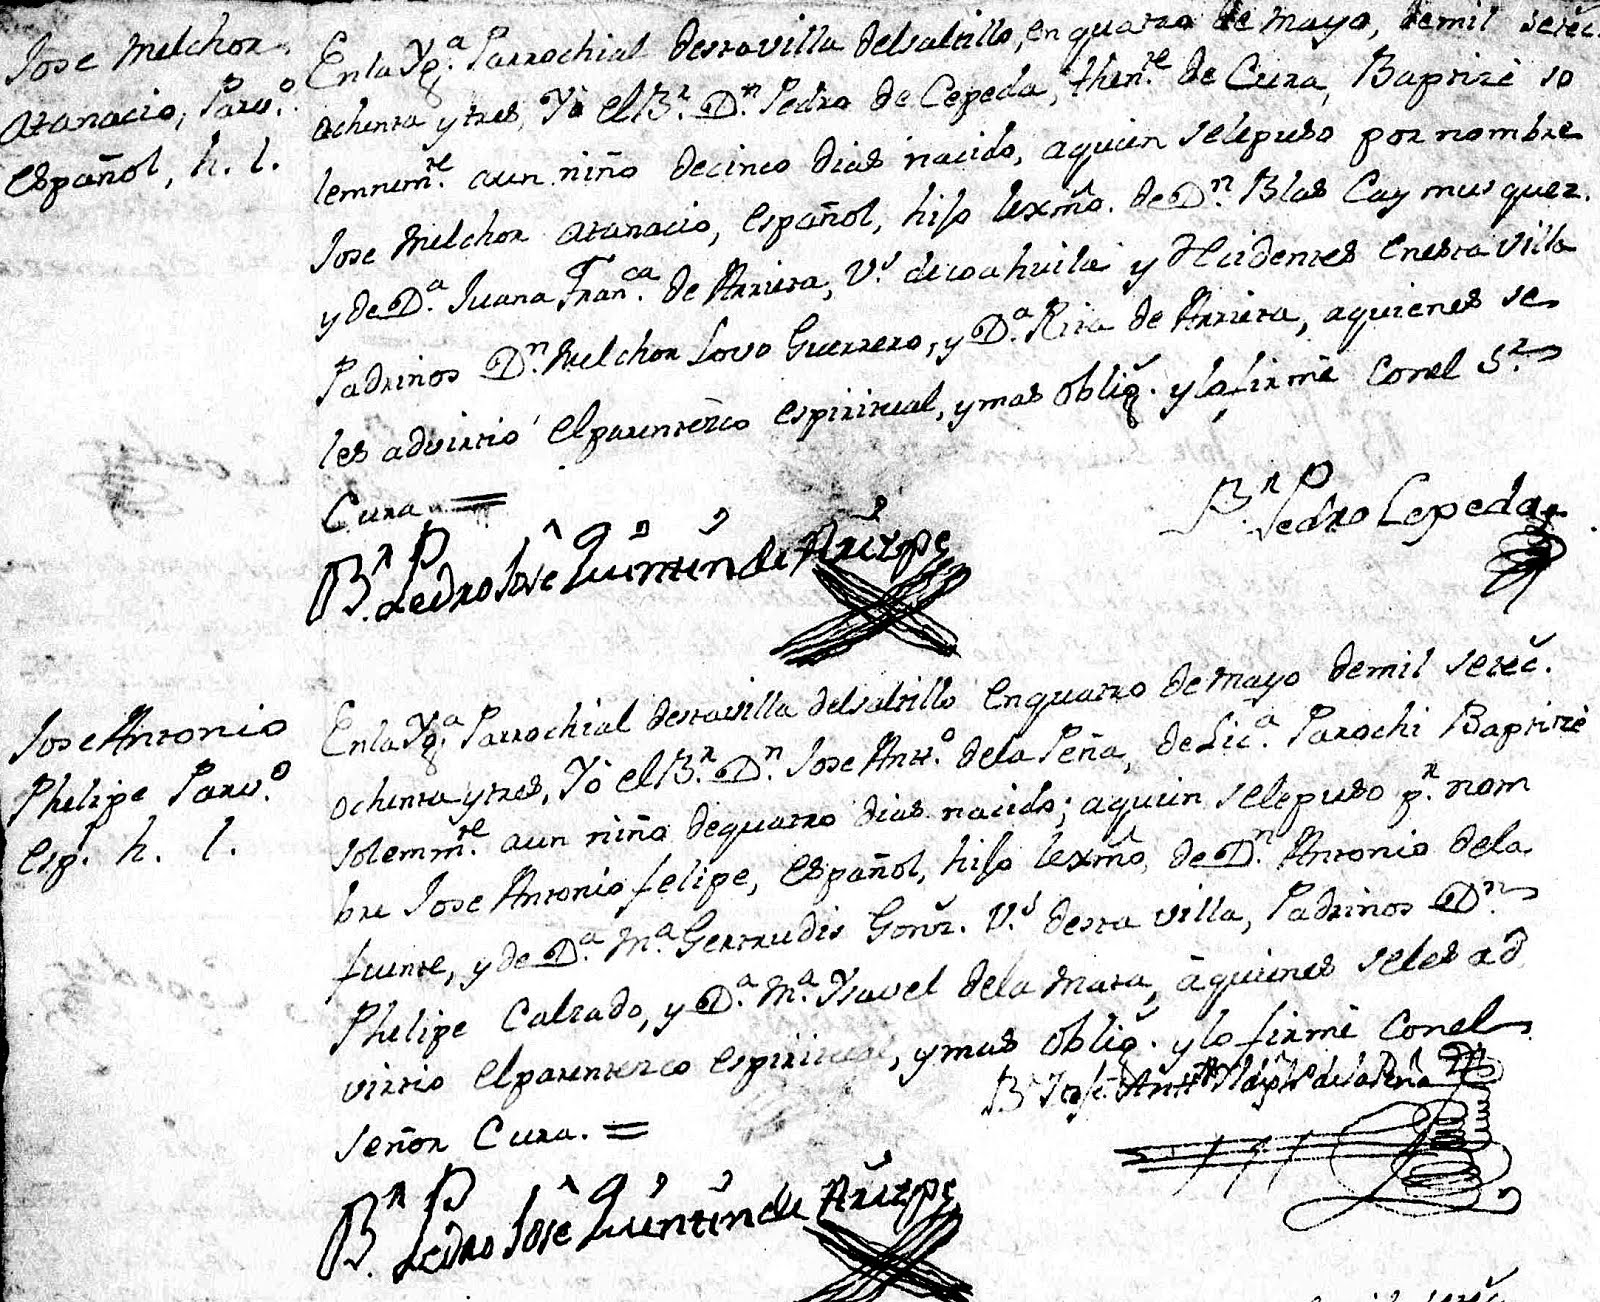 Jose Melchor
Atanacio, Parv.º
Español, h. l.
En la Yg.ª Parrochial desta villa del saltillo, en quatro de Mayo, de mil setec.
ochenta y tres, Yo el B.r D.n Pedro de Cepeda, then.te de Cura, Baptizè so
lemnem.te a un niño de cinco dias nacido, a quien se le puso por nombre
Jose Melchor Atanacio, español, hijo lexmõ. de D.n Blas Cay musquez.
y de D.ª Juana Fran.ca de Arrieta, V.s de coahuila y Recidentes en esta villa
Padrinos D.n Melchor Lovo Guerrero, y D.ª Rita de Arrieta, a quienes se
les advirtió el parentezco espiritual, y mas oblig. y lo firmè con el S.r
Cura =
B.r Pedro Cepeda
B.r Pedro José Quintin de Arizpe
Jose Antonio
Phelipe Parv.º
esp. h. l.
En la Yg.ª Parrochial desta villa del saltillo en quatro de Mayo de mil setec.
ochenta y tres, Yo el B.r D.n Jose Ant.º de la Peña, de Lic.ª Parochi Baptizè
solemm.te a un niño de quatro dias nacido; a quien se le puso p.r nom
bre Jose Antonio felipe, español, hijo lexmõ, de D.n Antonio de la
fuente, y de D.ª M.ª Gertrudis Gonz. V.s desta villa, Padrinos D.n
Phelipe Calzado, y D.ª M.ª Ysavel de la Mata, à quienes se les ad
virtio el parentezco espiritual, y mas oblig. y lo firmè con el
señor Cura. =
B.r José Ant.º de la Peña
B.r Pedro José Quintin de Arizpe